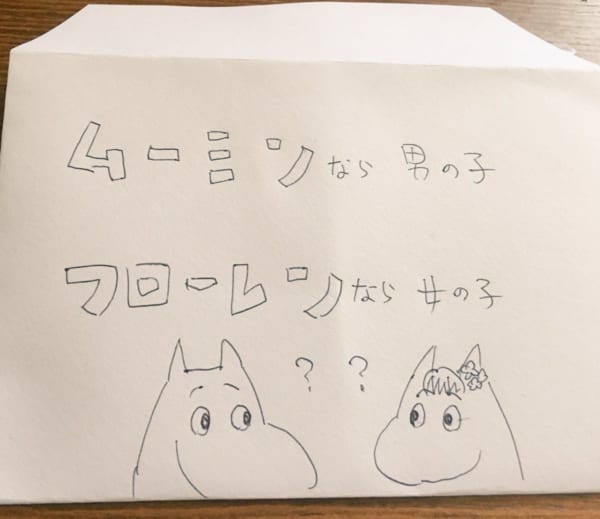 ムーミンなら 男の子
フローレンなら 女の子
? ?